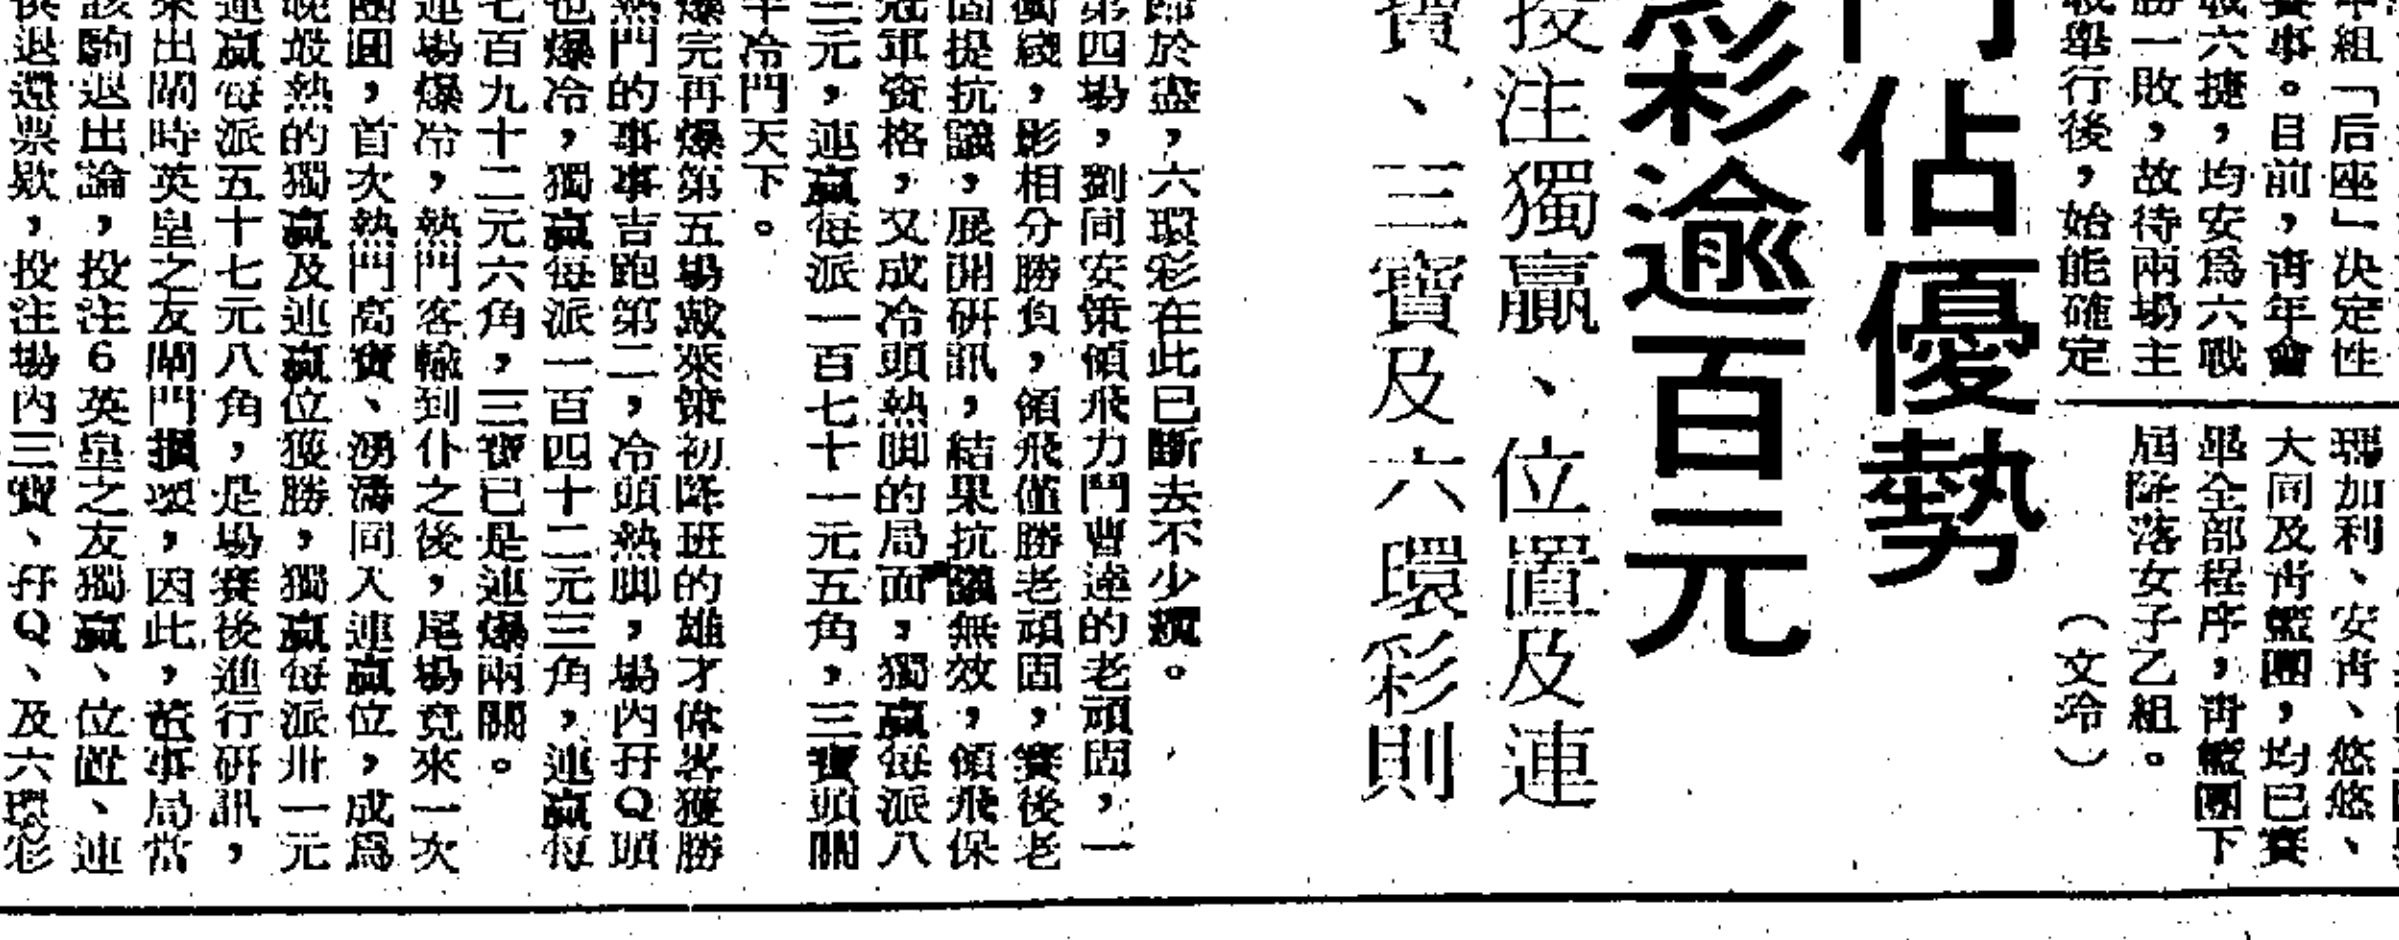 年組「后座」決定性
賽事。目前，靑年會
戰六捷，均安爲六戰
勝一敗，故待兩場主
戰舉行後，始能確定
瑪加利、安靑、悠悠、
大同及靑籃團，均已賽
畢全部程序，靑籃團下
屆降落女子乙組。
（文玲）
門佔優勢
彩逾百元
投注獨贏、位置及連
寶、三寶及六環彩則
歸於盡，六環彩在此已斷去不少纜。
第四場，劉同安策領飛力鬥曹達的老頑固，一
銜綫，影相分勝負，領飛僅勝老頑固，賽後老
固提抗議，展開研訊，結果抗議無效，領飛保
冠軍資格，又成冷頭熱脚的局面，獨贏每派八
三元，連贏每派一百七十一元五角，三寶頭關
半冷門天下。
爆完再爆第五場戴萊策初降班的雄才偉畧獲勝
熱門的事事吉跑第二，冷頭熱脚，場內孖Q頭
也爆冷，獨贏每派一百四十二元三角，連贏每
七百九十二元六角，三寶已是連爆兩關。
連場爆冷，熱門客輸到仆之後，尾場竟來一次
團圓，首次熱門高寶、湧濤同入連贏位，成爲
晚最熱的獨贏及連贏位獲勝，獨贏每派卅一元
連贏每派五十七元八角，是場賽後進行研訊，
來出閘時英皇之友閘門損壞，因此，董事局當
該駒退出論，投注6英皇之友獨贏、位置、連
供退還票欵，投注場內三寶、孖Q、及六環彩